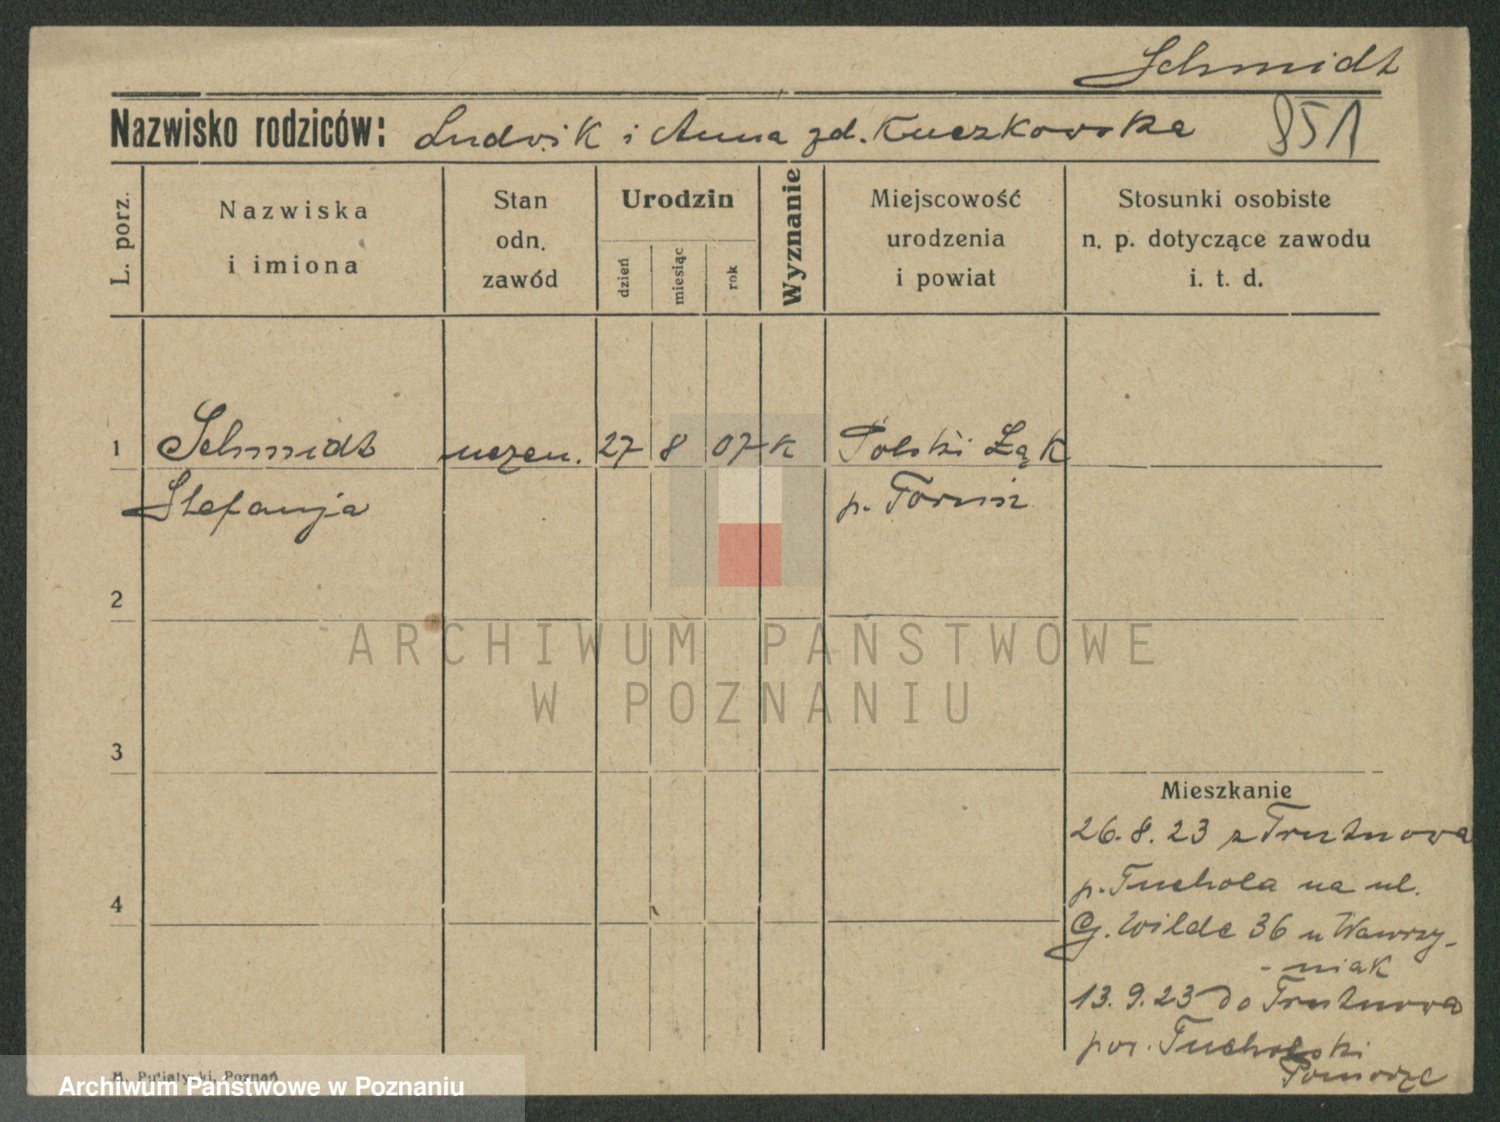 Schmidt
Nazwisko rodziców: Ludwik i Anna zd. Kuczkowska 851
L. porz.
Nazwiska
i imiona
Stan
odn.
zawód
Urodzin
dzień
miesiąc
rok
Wyznanie
Miejscowość
urodzenia
i powiat
Stosunki osobiste
n. p. dotyczące zawodu
i. t. d.
1 Schmidt uczen. 27 8 07 K Polski Łąk
Stefanja p. Toruń
2
ARCHIWUM PAŃSTWOWE
W POZNANIU
3
Mieszkanie
26. 8. 23 z Trutnowa
p. Tuchola na ul.
4
G. Wilde 36 u Wawrzy-
-niak
13. 9. 23 do Trutnowa
pow. Tucholski
Pomorze
Poznań
Archiwum Państwowe w Poznaniu